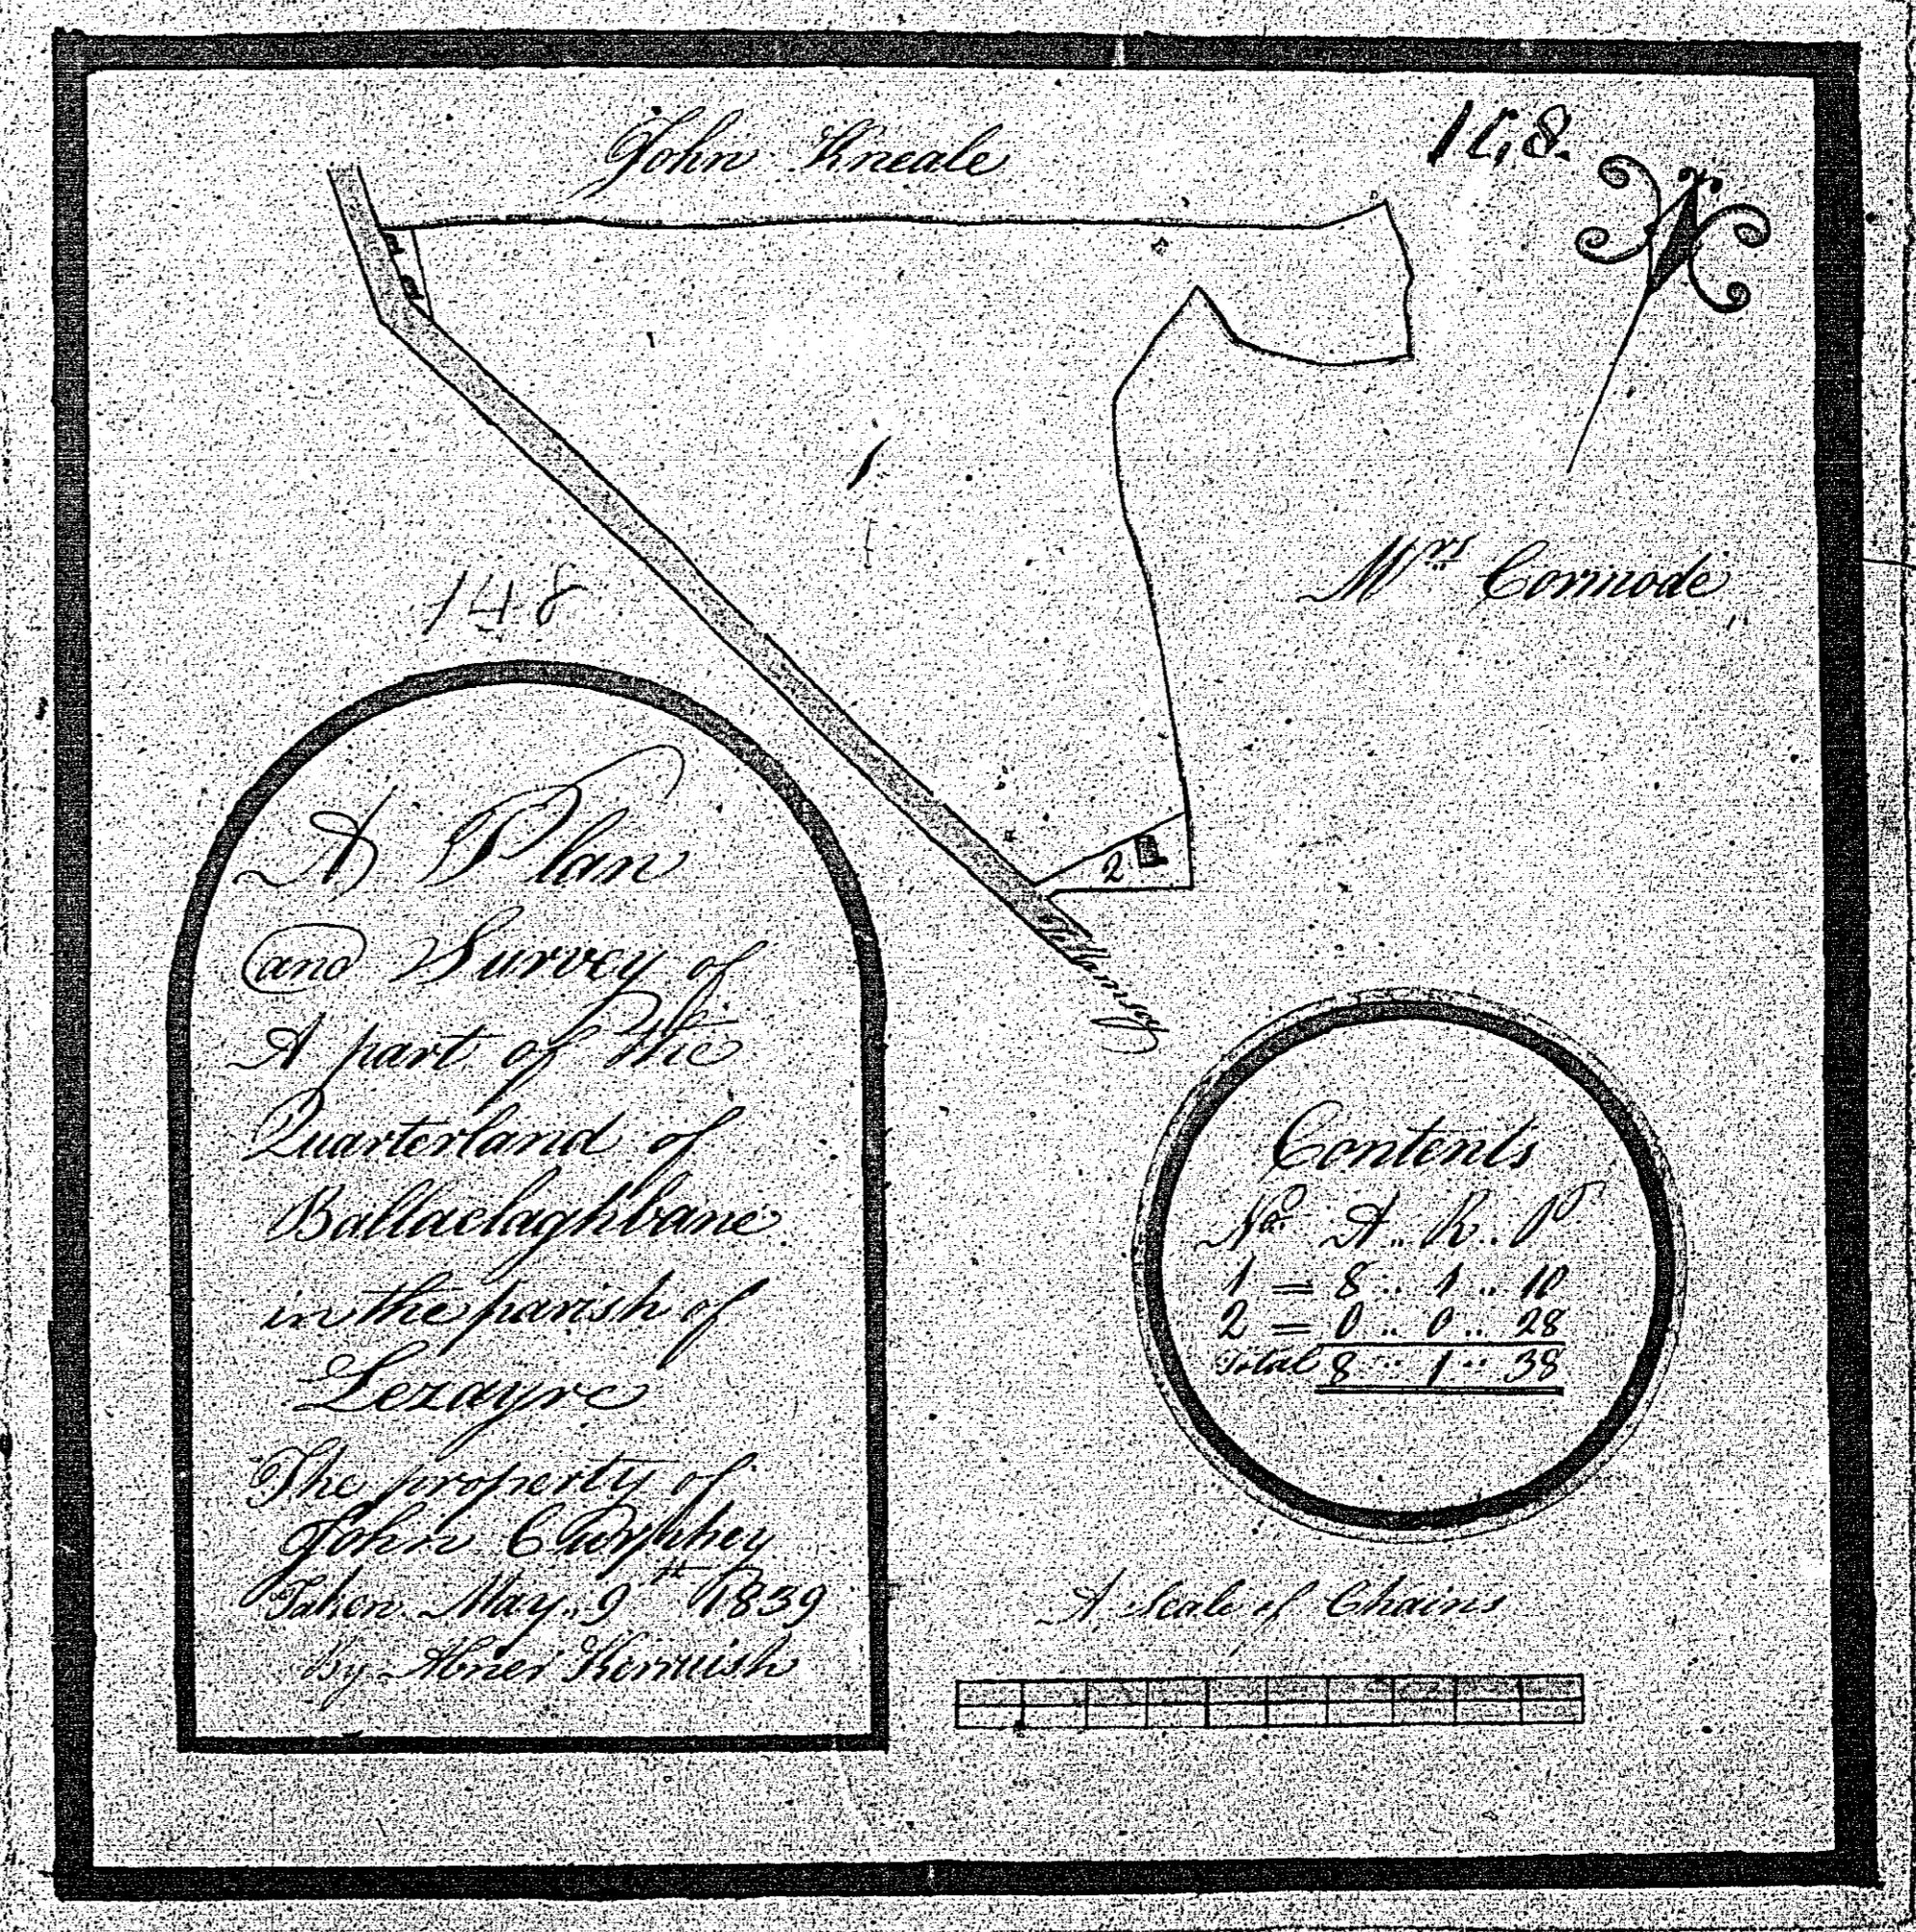 John Kneale
148.
1
148
Mrs Cormode
2
To Ramsey
A Plan
and Survey of
A part of the
Quarterland of
Ballaclaghbane
in the parish of
Lezayre
The property of
John C
Taken May 9th 1839
By Abner Kermish
Contents
No. A.. R.. P
1 = 8 .. 1 .. 10
2 = 0 .. 0 .. 28
Total 8 .. 1 .. 38
A Scale of Chains